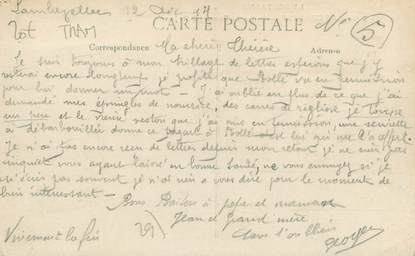 Lambezellec 12 Déc 17
CARTE POSTALE
N° 5
Correspondance Ma chère Chérie Adresse
Je suis toujours à mon village de lettres espérons que j'y
resterai encore longtemps je profite que va en permission
pour lui donner un mot - J'ai oublié en plus de ce que j'ai
demandé mes épingles de nourrice, des cannes de réglisse
un peu et le vieux veston que j'ai mis en permission une serviette
à débarbouiller donne ce paquet à c'est lui qui me l'a offert
Je n'ai pas encore reçu de lettres depuis mon retour je ne suis pas
inquiet vous ayant laissé en bonne santé, ne vous ennuyez si je
n'écris pas souvent je n'ai rien à vous dire pour le moment de
bien intéressant -
Bons Baisers à papa et maman
Jean et grand mère
Vivement la fin 29)